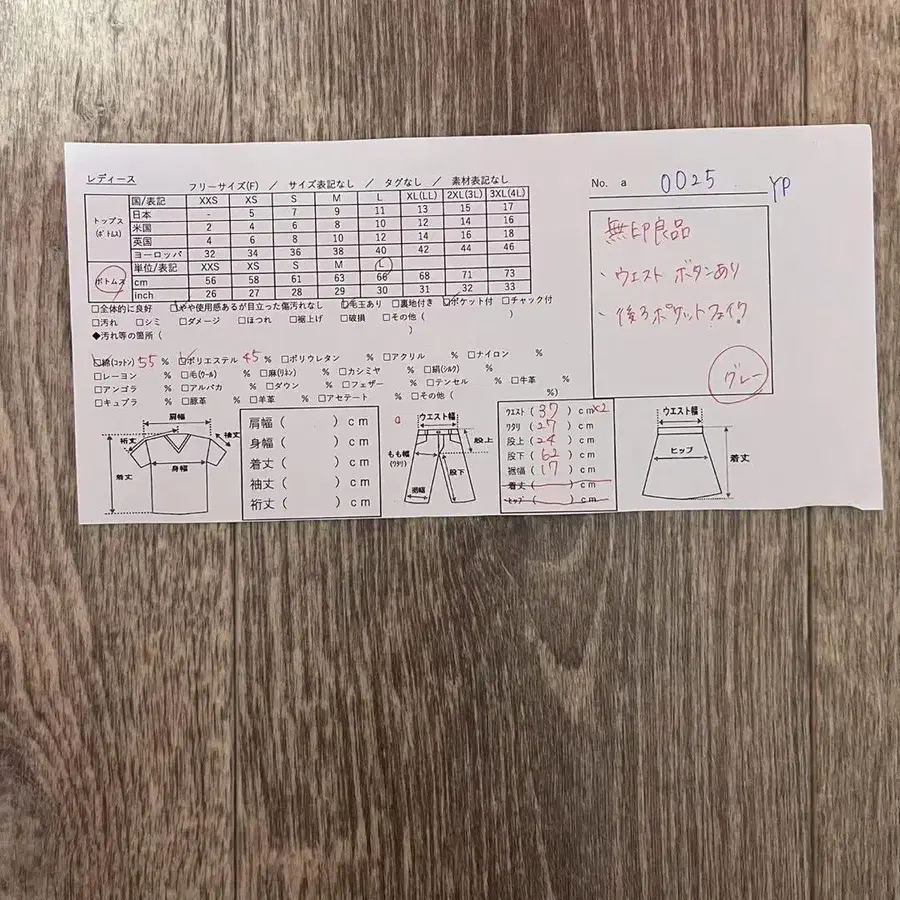 レディース
フリーサイズ(F) / サイズ表記なし / タグなし / 素材表記なし
No. a 0025 YP
トップス (ボトムス)
国/表記 XXS XS S M L XL(LL) 2XL(3L) 3XL(4L)
日本 - 5 7 9 11 13 15 17
米国 2 4 6 8 10 12 14 16
英国 4 6 8 10 12 14 16 18
ヨーロッパ 32 34 36 38 40 42 44 46
ボトムス
単位/表記 XXS XS S M L
cm 56 58 61 63 66 68 71 73
inch 26 27 28 29 30 31 32 33
□全体的に良好 □やや使用感あるが目立った傷汚れなし □毛玉あり □裏地付き □ポケット付 □チャック付
□汚れ □シミ □ダメージ □ほつれ □裾上げ □破損 □その他 ( )
◆汚れ等の箇所 ( )
□綿(コットン) 55 % □ポリエステル 45 % □ポリウレタン % □アクリル % □ナイロン %
□レーヨン % □毛(ウール) % □麻(リネン) % □カシミヤ % □絹(シルク) %
□アンゴラ % □アルパカ % □ダウン % □フェザー % □テンセル % □牛革 %
□キュプラ % □豚革 % □羊革 % □アセテート % □その他 ( %)
無印良品
・ウエスト ボタンあり
・後ろポケットフェイク
グレー
肩幅
裄丈
袖丈
身幅
着丈
肩幅 ( ) cm
身幅 ( ) cm
着丈 ( ) cm
袖丈 ( ) cm
裄丈 ( ) cm
ウエスト幅
股上
もも幅
(ワタリ)
股下
裾幅
ウエスト ( 37 ) cm×2
ワタリ ( 27 ) cm
股上 ( 24 ) cm
股下 ( 62 ) cm
裾幅 ( 17 ) cm
着丈 ( ) cm
ヒップ ( ) cm
ウエスト幅
ヒップ
着丈